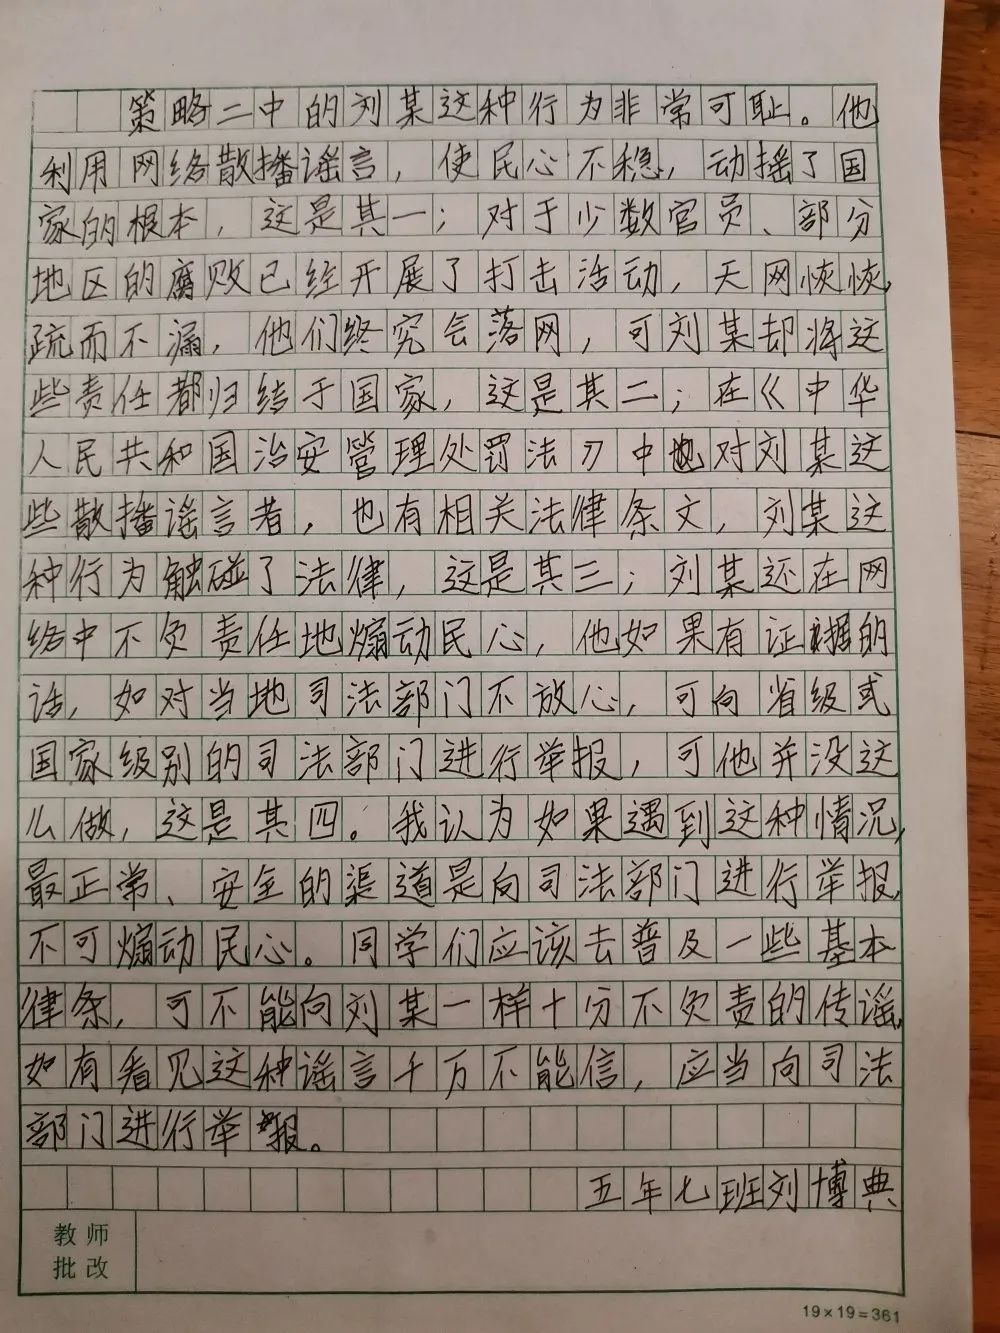 策略二中的刘某这种行为非常可耻。他
利用网络散播谣言，使民心不稳，动摇了国
家的根本，这是其一；对于少数官员、部分
地区的腐败已经开展了打击活动，天网恢恢，
疏而不漏，他们终究会落网，可刘某却将这
些责任都归结于国家，这是其二；在《中华
人民共和国治安管理处罚法》中也对刘某这
些散播谣言者，也有相关法律条文，刘某这
种行为触碰了法律，这是其三；刘某还在网
络中不负责任地煽动民心，他如果有证据的
话，如对当地司法部门不放心，可向省级或
国家级别的司法部门进行举报，可他并没这
么做，这是其四。我认为如果遇到这种情况，
最正常、安全的渠道是向司法部门进行举报，
不可煽动民心。同学们应该去普及一些基本
律条，可不能向刘某一样十分不负责的传谣，
如有看见这种谣言千万不能信，应当向司法
部门进行举报。
五年七班刘博典
教师
批改
19×19=361